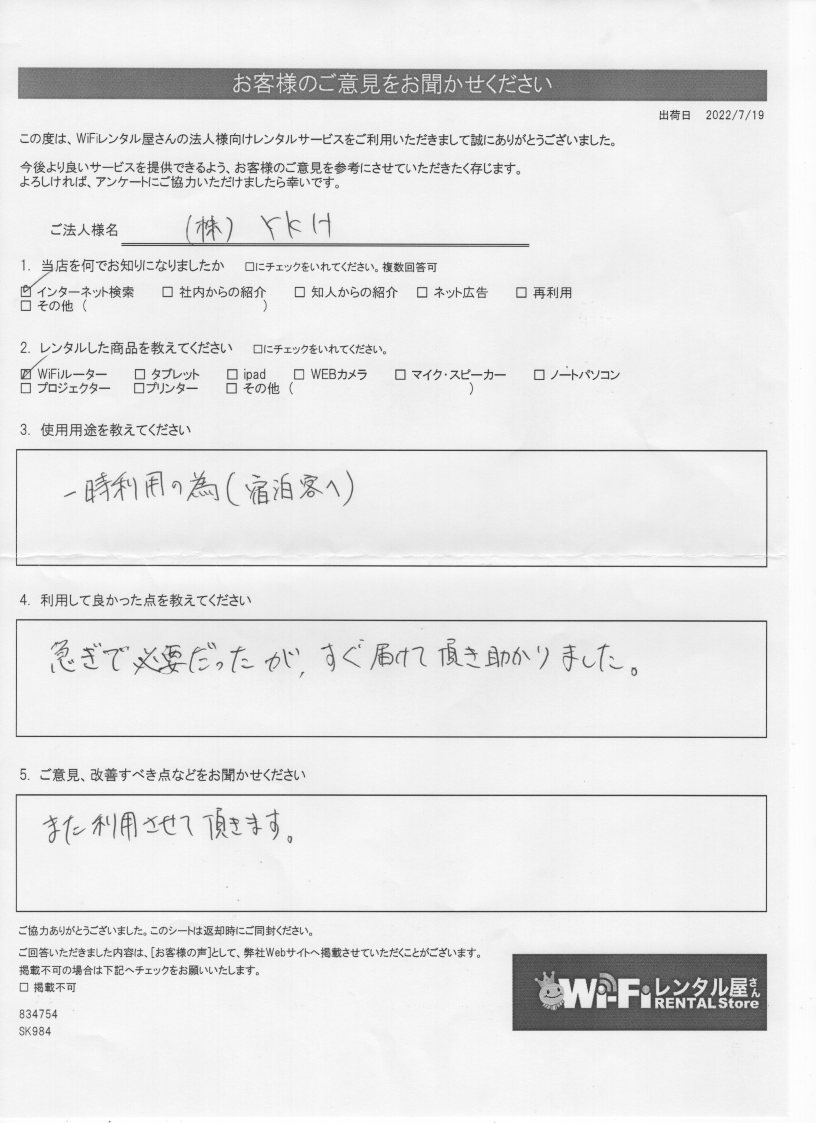 お客様のご意見をお聞かせください
出荷日 2022/7/19
この度は、WiFiレンタル屋さんの法人様向けレンタルサービスをご利用いただきまして誠にありがとうございました。
今後より良いサービスを提供できるよう、お客様のご意見を参考にさせていただきたく存じます。
よろしければ、アンケートにご協力いただけましたら幸いです。
ご法人様名 (株) YKH
1. 当店を何でお知りになりましたか □にチェックをいれてください。複数回答可
☑ インターネット検索 □ 社内からの紹介 □ 知人からの紹介 □ ネット広告 □ 再利用
□ その他 ( )
2. レンタルした商品を教えてください □にチェックをいれてください。
☑ WiFiルーター □ タブレット □ ipad □ WEBカメラ □ マイク・スピーカー □ ノートパソコン
□ プロジェクター □プリンター □ その他 ( )
3. 使用用途を教えてください
一時利用の為(宿泊客へ)
4. 利用して良かった点を教えてください
急ぎで必要だったが、すぐ届けて頂き助かりました。
5. ご意見、改善すべき点などをお聞かせください
また利用させて頂きます。
ご協力ありがとうございました。このシートは返却時にご同封ください。
ご回答いただきました内容は、[お客様の声]として、弊社Webサイトへ掲載させていただくことがございます。
掲載不可の場合は下記へチェックをお願いいたします。
□ 掲載不可
834754
SK984
Wi-Fiレンタル屋さん
RENTAL Store